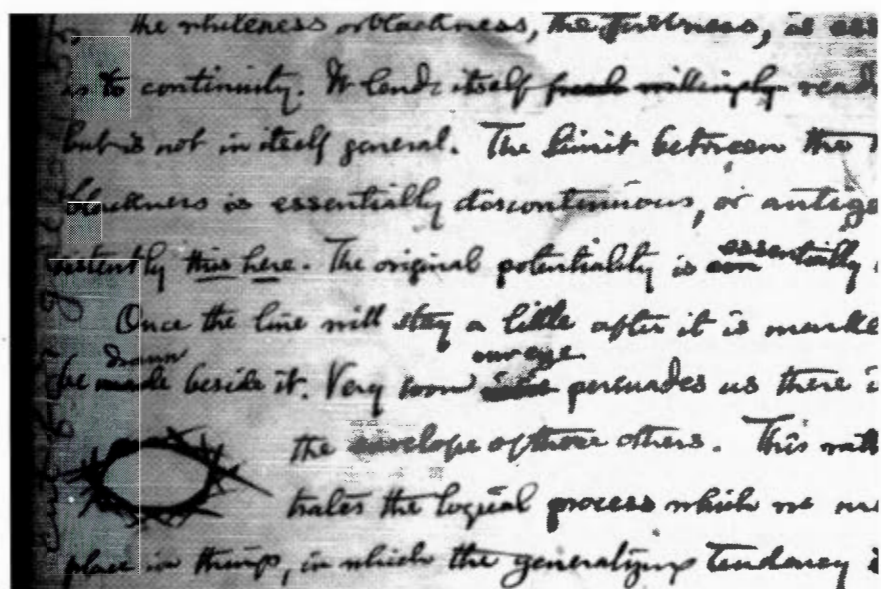 the whiteness or blackness, the firstness, is ess
is to continuity. It lends itself freely willingly read
but is not in itself general. The limit between the
blackness is essentially discontinuous, or antige
sistently this here. The original potentiality is essentially
Once the line will stay a little after it is marke
drawn our eye
be made beside it. Very soon persuades us there i
the envelope of those others. This
trates the logical process which we
place in things, in which the generalizing tendency